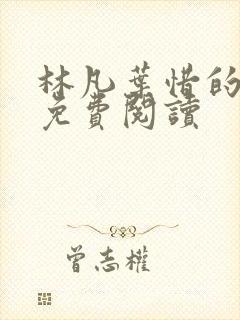 林凡葉惜的
免費閱讀
曾志權